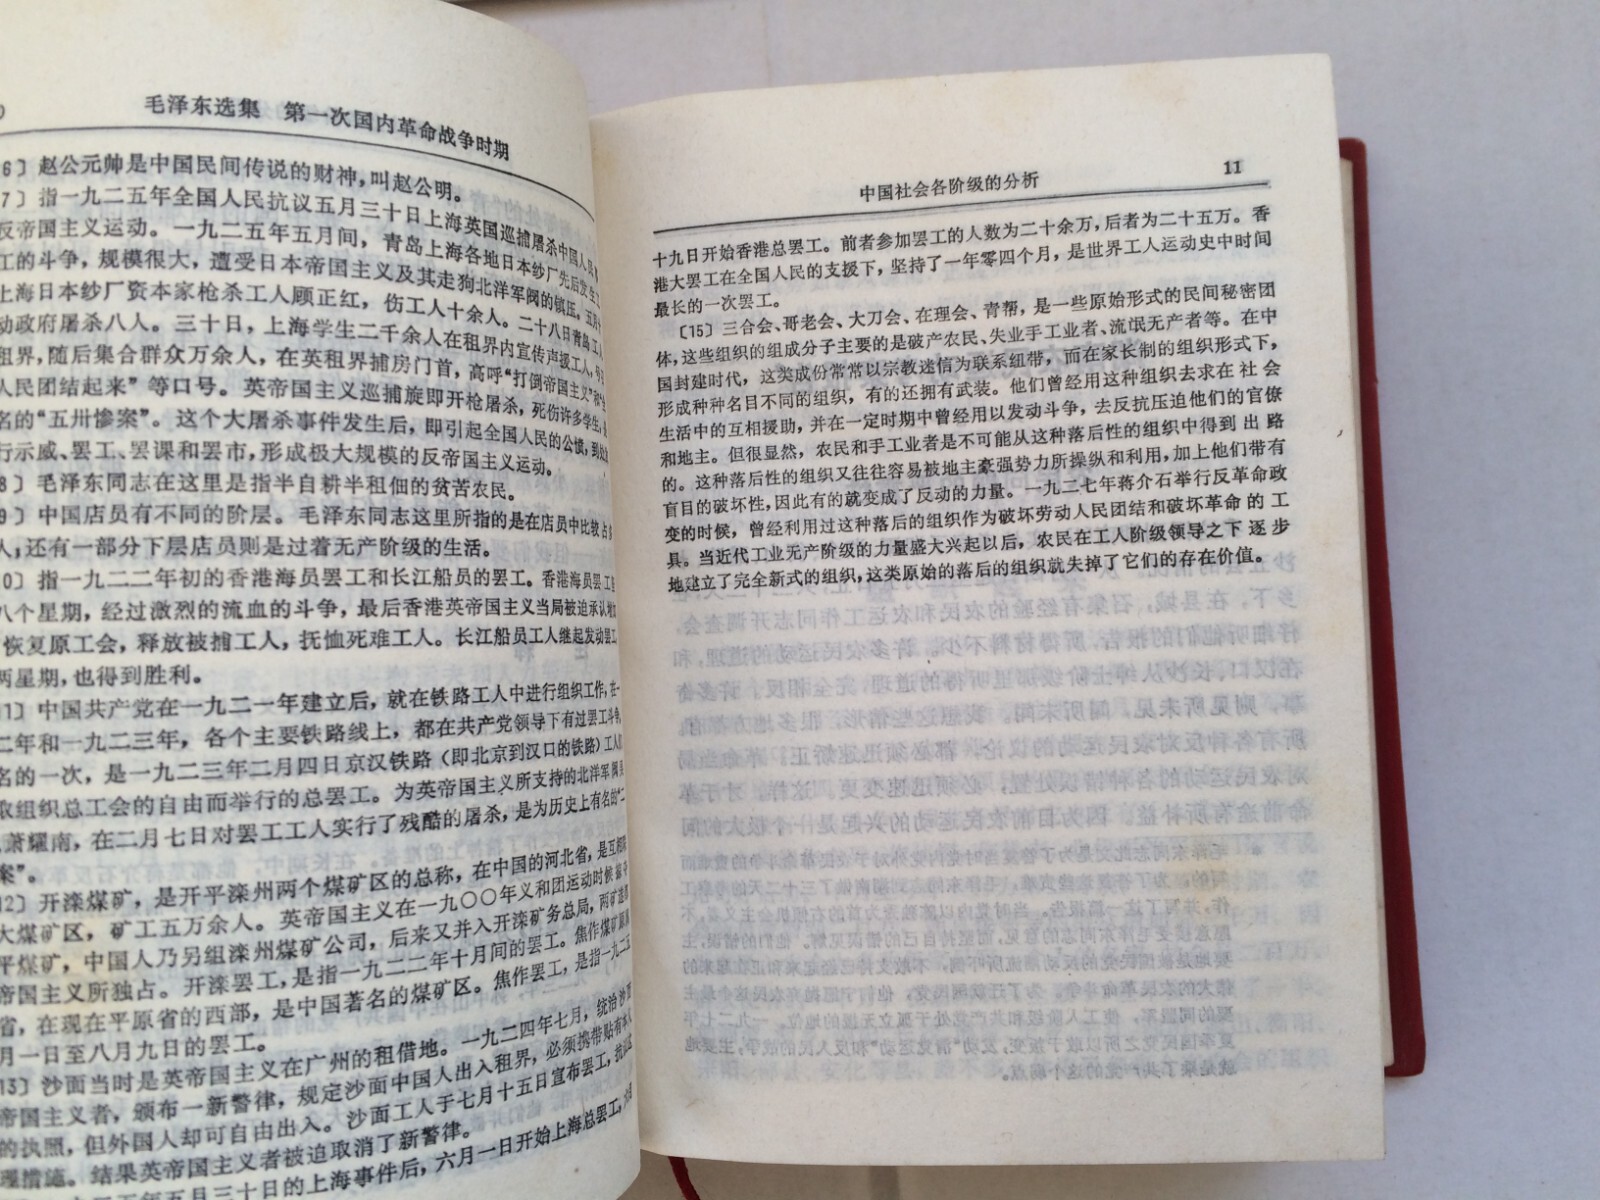 毛泽东选集　第一次国内革命战争时期
6〕赵公元帅是中国民间传说的财神,叫赵公明。
7〕指一九二五年全国人民抗议五月三十日上海英国巡捕屠杀中国人民
反帝国主义运动。一九二五年五月间，青岛上海各地日本纱厂先后发生
工的斗争，规模很大，遭受日本帝国主义及其走狗北洋军阀的镇压。五月
上海日本纱厂资本家枪杀工人顾正红，伤工人十余人。二十八日青岛
动政府屠杀八人。三十日，上海学生二千余人在租界内宣传声援工人，
租界,随后集合群众万余人，在英租界捕房门首，高呼“打倒帝国主义”
人民团结起来”等口号。英帝国主义巡捕旋即开枪屠杀，死伤许多学生
名的“五卅惨案”。这个大屠杀事件发生后，即引起全国人民的公愤,到处
行示威、罢工、罢课和罢市,形成极大规模的反帝国主义运动。
8〕毛泽东同志在这里是指半自耕半租佃的贫苦农民。
9〕中国店员有不同的阶层。毛泽东同志这里所指的是在店员中比较占
人,还有一部分下层店员则是过着无产阶级的生活。
0〕指一九二二年初的香港海员罢工和长江船员的罢工。香港海员罢工
八个星期，经过激烈的流血的斗争，最后香港英帝国主义当局被迫承认
恢复原工会，释放被捕工人，抚恤死难工人。长江船员工人继起发动罢工
两星期,也得到胜利。
11〕中国共产党在一九二一年建立后，就在铁路工人中进行组织工作,在一
二年和一九二三年，各个主要铁路线上，都在共产党领导下有过罢工斗争
名的一次，是一九二三年二月四日京汉铁路（即北京到汉口的铁路）工人
取组织总工会的自由而举行的总罢工。为英帝国主义所支持的北洋军阀
萧耀南，在二月七日对罢工工人实行了残酷的屠杀，是为历史上有名的“二
案”。
12〕开滦煤矿，是开平滦州两个煤矿区的总称，在中国的河北省，是互相
大煤矿区，矿工五万余人。英帝国主义在一九〇〇年义和团运动时候
平煤矿，中国人乃另组滦州煤矿公司，后来又并入开滦矿务总局，两矿
帝国主义所独占。开滦罢工,是指一九二二年十月间的罢工。焦作煤矿
省，在现在平原省的西部，是中国著名的煤矿区。焦作罢工，是指一九二五
月一日至八月九日的罢工。
13〕沙面当时是英帝国主义在广州的租借地。一九二四年七月，统治沙
帝国主义者，颁布一新警律，规定沙面中国人出入租界，必须携带贴有
的执照，但外国人却可自由出入。沙面工人于七月十五日宣布罢工，
理措施。结果英帝国主义者被迫取消了新警律。
年五月三十日的上海事件后，六月一日开始上海总罢工，
中国社会各阶级的分析　11
十九日开始香港总罢工。前者参加罢工的人数为二十余万，后者为二十五万。香
港大罢工在全国人民的支援下，坚持了一年零四个月，是世界工人运动史中时间
最长的一次罢工。
〔15〕三合会、哥老会、大刀会、在理会、青帮，是一些原始形式的民间秘密团
体，这些组织的组成分子主要的是破产农民、失业手工业者、流氓无产者等。在中
国封建时代，这类成份常常以宗教迷信为联系纽带，而在家长制的组织形式下，
形成种种名目不同的组织，有的还拥有武装。他们曾经用这种组织去求在社会
生活中的互相援助，并在一定时期中曾经用以发动斗争，去反抗压迫他们的官僚
和地主。但很显然，农民和手工业者是不可能从这种落后性的组织中得到出路
的。这种落后性的组织又往往容易被地主豪强势力所操纵和利用,加上他们带有
盲目的破坏性,因此有的就变成了反动的力量。一九二七年蒋介石举行反革命政
变的时候，曾经利用过这种落后的组织作为破坏劳动人民团结和破坏革命的工
具。当近代工业无产阶级的力量盛大兴起以后，农民在工人阶级领导之下逐步
地建立了完全新式的组织,这类原始的落后的组织就失掉了它们的存在价值。